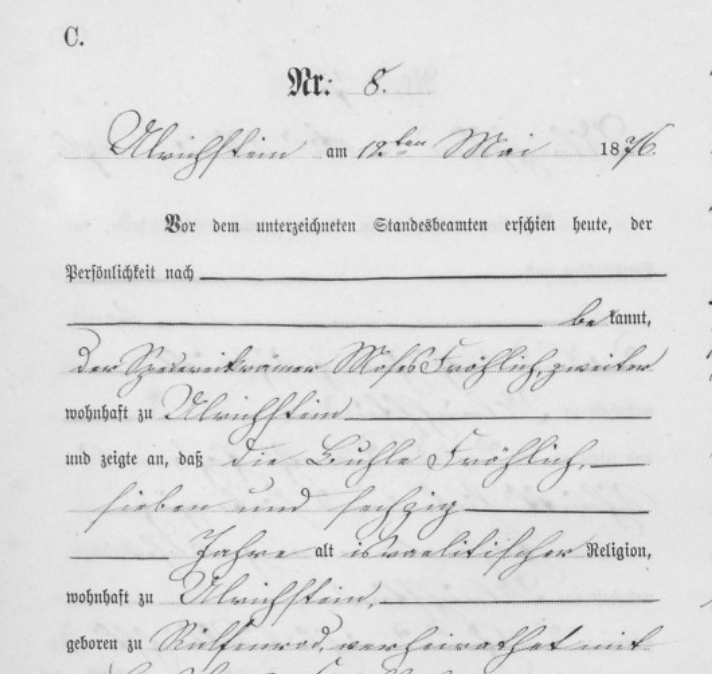 C.
Nr. 8.
Ulrichstein am 12ten Mai 1876.
Vor dem unterzeichneten Standesbeamten erschien heute, der
Persönlichkeit nach
bekannt,
der Spezereikrämer Moses Fröhlich, zweiter
wohnhaft zu Ulrichstein
und zeigte an, daß die Buhle Fröhlich,
sieben und sechzig
Jahre alt israelitischer Religion,
wohnhaft zu Ulrichstein,
geboren zu Rülfenrod, verheirathet mit